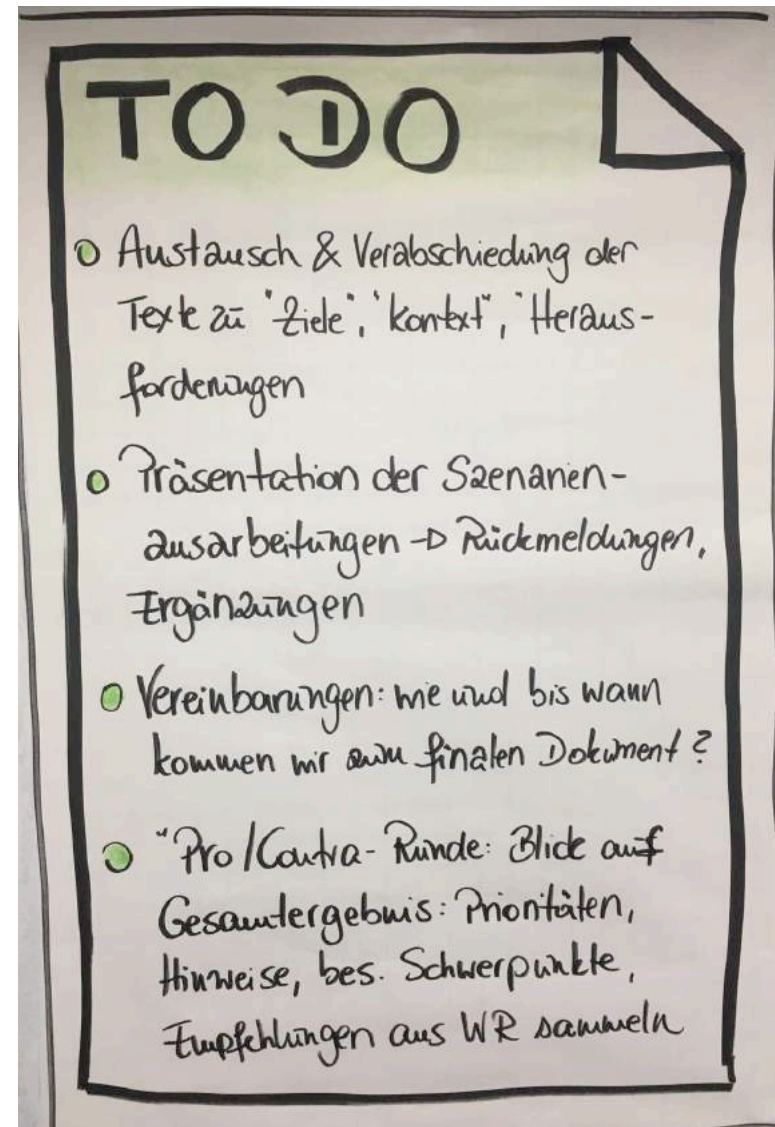 TO DO
Austausch & Verabschiedung der
Texte zu "Ziele", "Kontext", "Heraus-
forderungen
Präsentation der Szenarien-
ausarbeitungen → Rückmeldungen,
Ergänzungen
Vereinbarungen: wie und bis wann
kommen wir zum finalen Dokument?
"Pro/Contra-Runde: Blick auf
Gesamtergebnis: Prioritäten,
Hinweise, bes. Schwerpunkte,
Empfehlungen aus WR sammeln